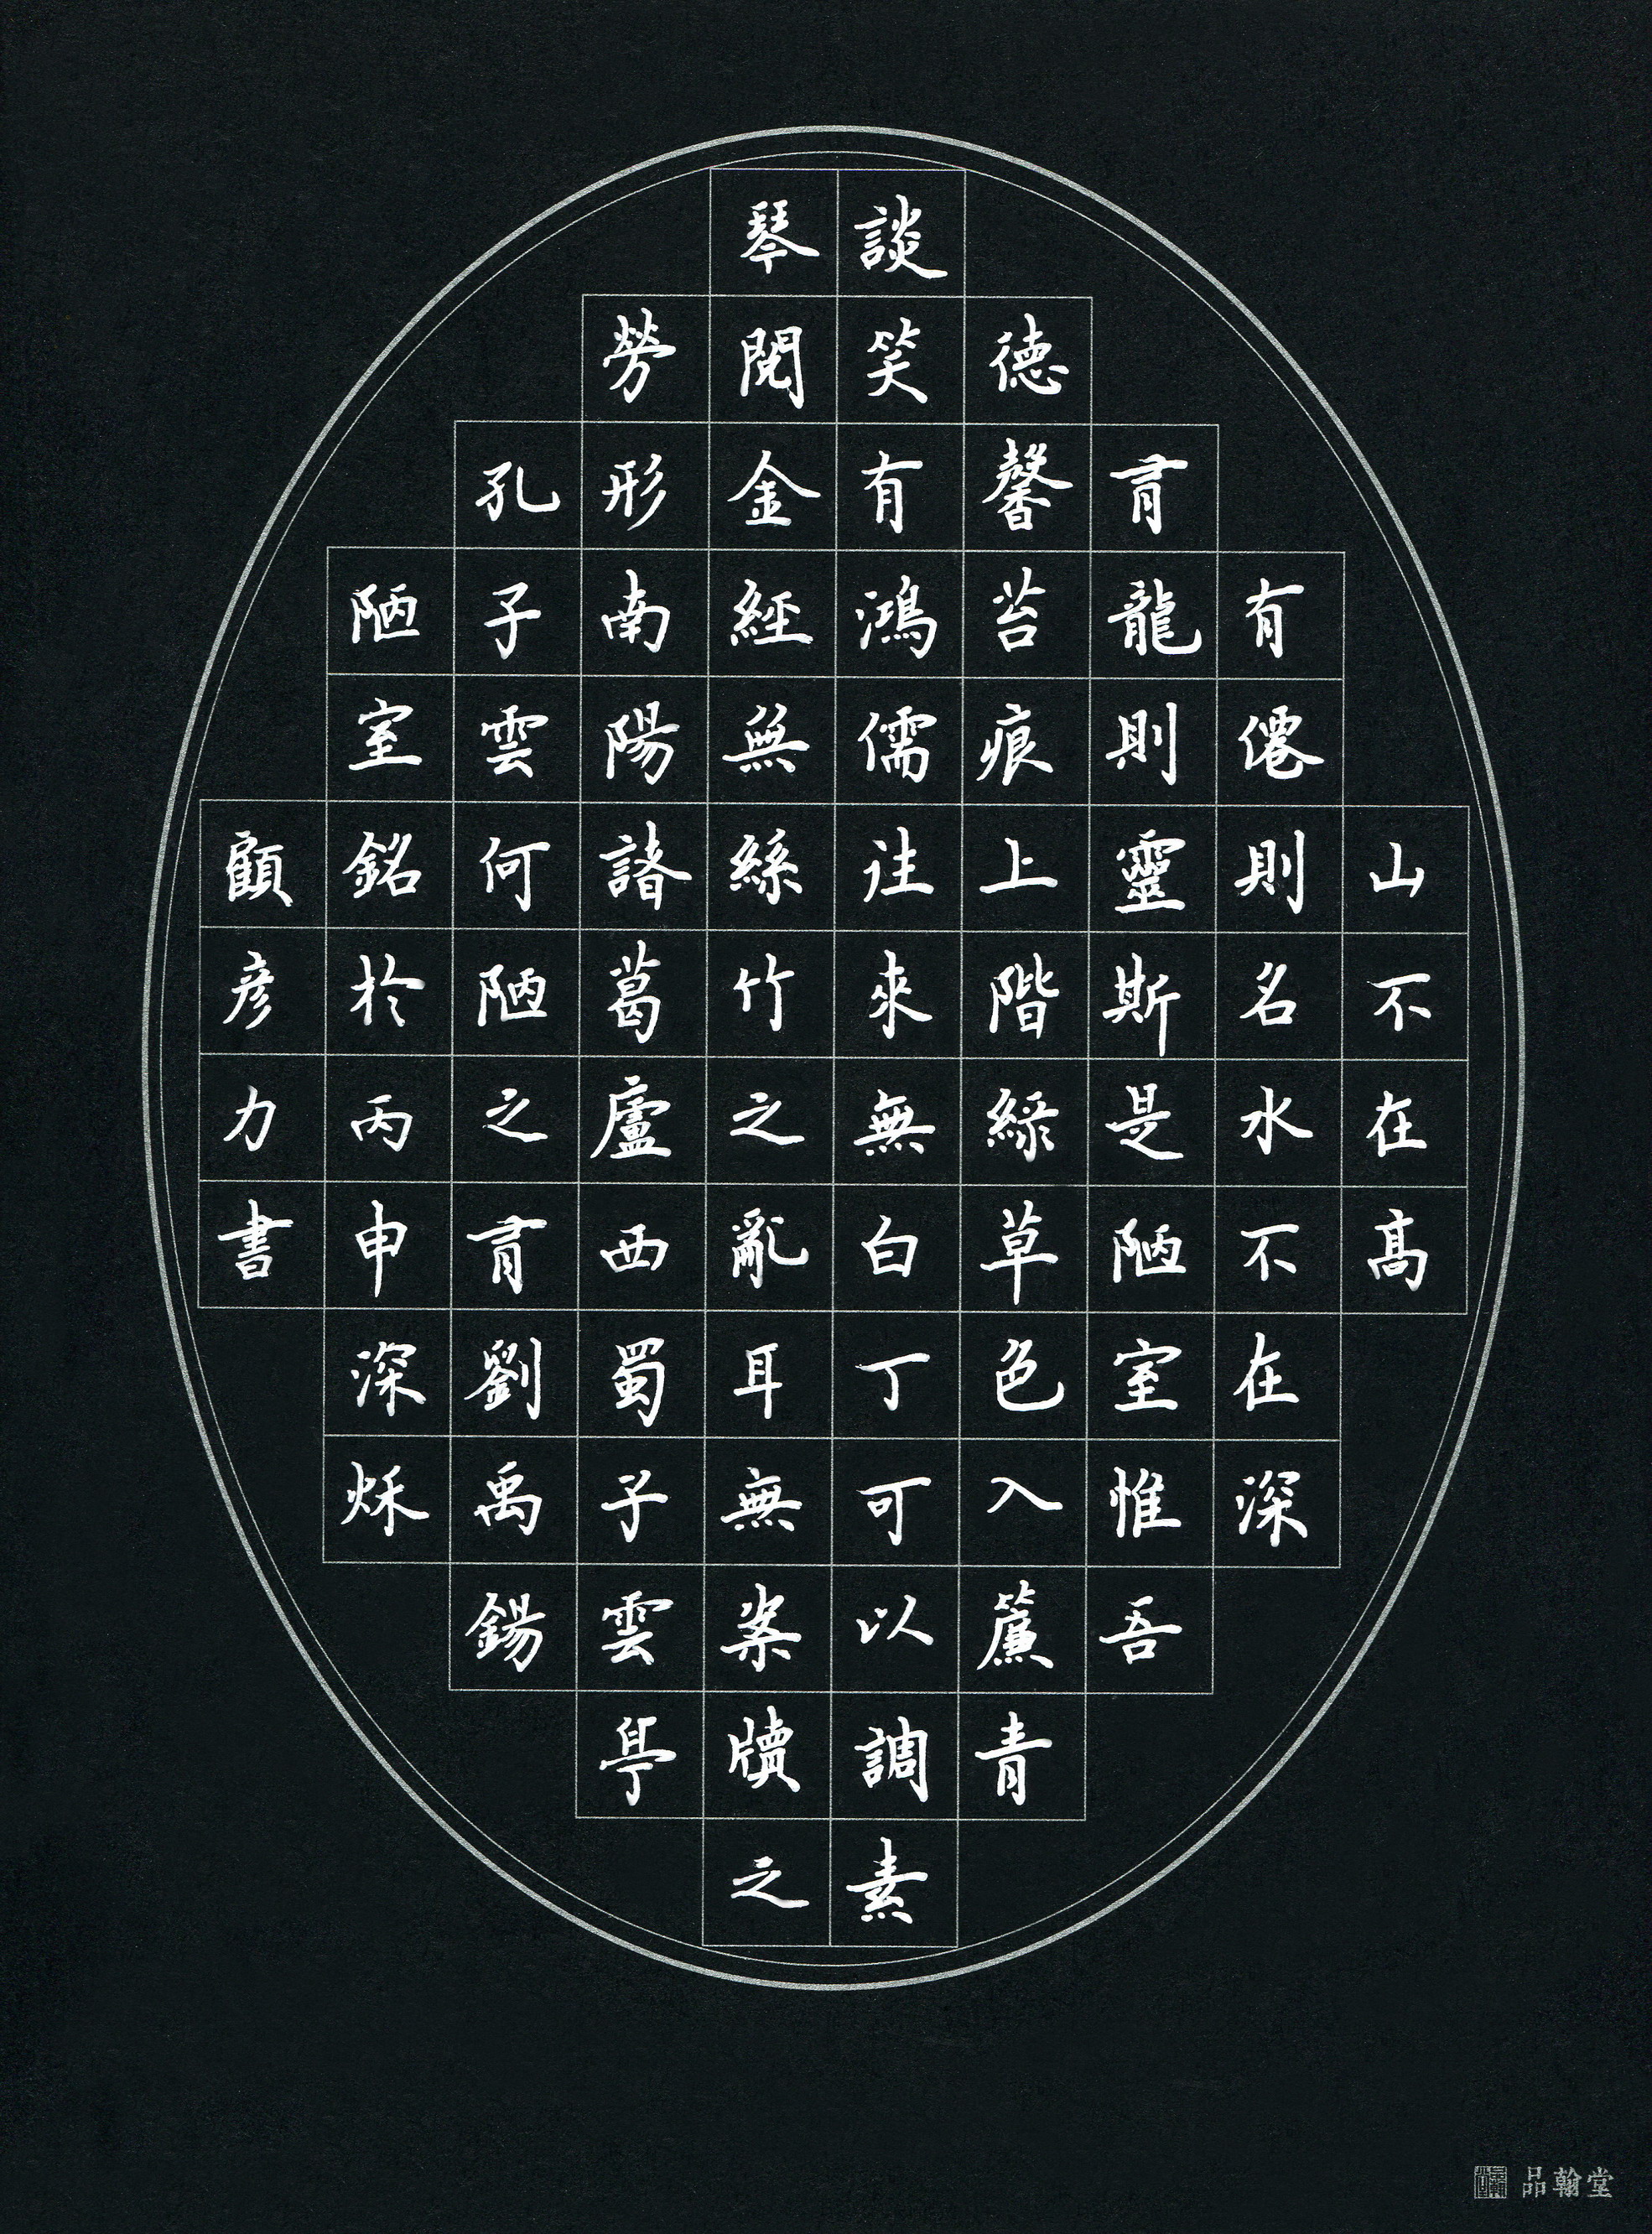 山不在高
有僊則名水不在深
有龍則靈斯是陋室惟吾
德馨苔痕上階綠草色入簾青
談笑有鴻儒往來無白丁可以調素
琴閱金經無絲竹之亂耳無案牘之
勞形南陽諸葛廬西蜀子雲亭
孔子雲何陋之有劉禹錫
陋室銘於丙申深秌
顧彥力書
品翰堂